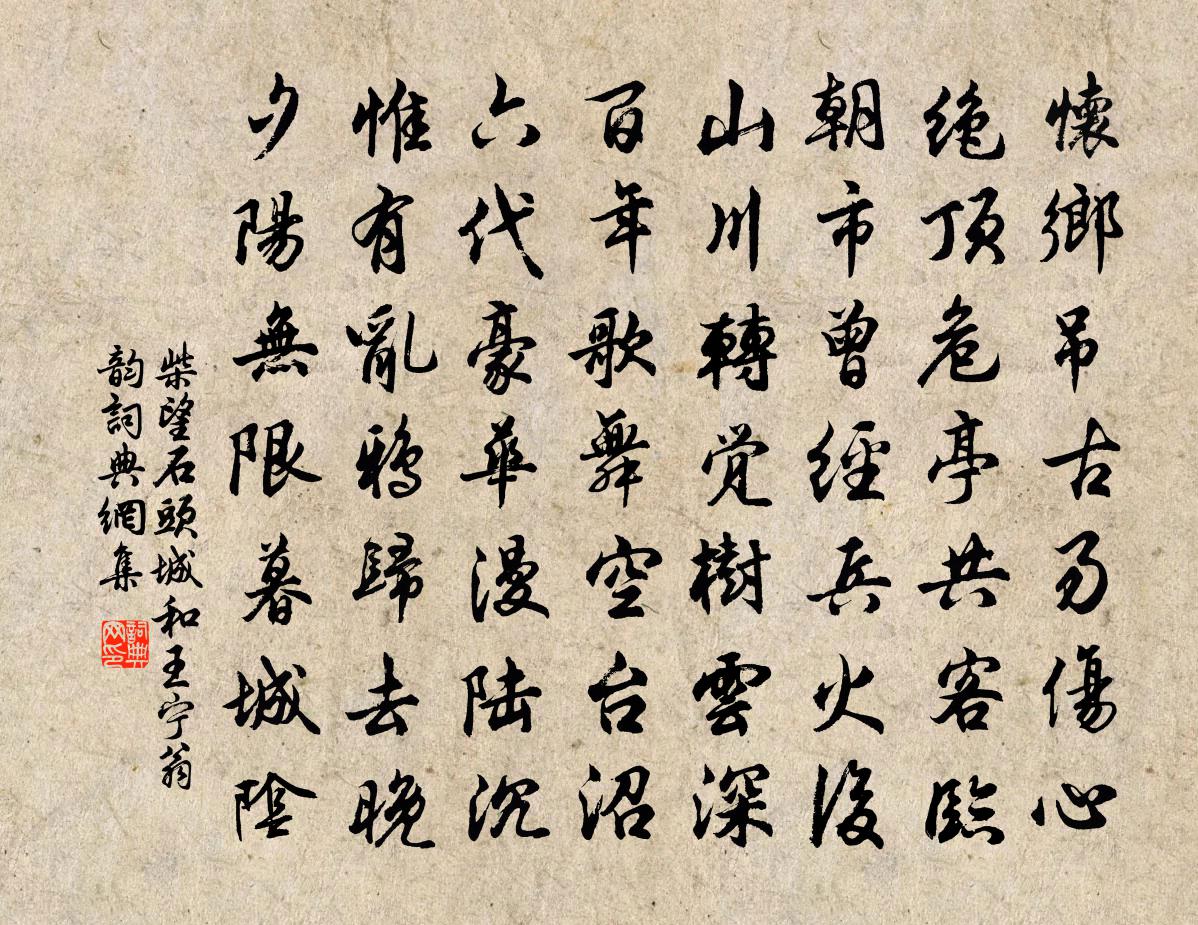 懷鄉吊古易傷心
絶頂危亭共客臨
朝市曾經兵火後
山川轉覺樹雲深
百年歌舞空台沼
六代豪華漫陆沉
惟有亂鴉歸去晚
夕陽無限暮城陰
柴望石頭城和王宁翁
韵詞典網集
詞典
网印